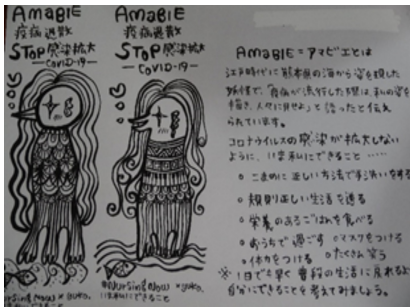 AMABIE
疫病退散
STOP感染拡大
—COVID-19—
AMABIE
疫病退散
STOP感染拡大
—COVID-19—
Nursing Now × yuko.
#Nursing Now × yuko.
いま私にできること
AMABIE=アマビエとは
江戸時代に熊本県の海から姿を現した
妖怪で、「疫病が流行した際は、私の姿を
描き、人々に見せよ」と語ったと伝え
られています。
コロナウイルスの感染が拡大しない
ように、いま私にできること……
○こまめに正しい方法で手洗いをする
○規則正しい生活を送る
○栄養のあるごはんを食べる
○おうちで過ごす ○マスクをつける
○体力をつける ○たくさん笑う
※1日でも早く普段の生活に戻れるよう
自分にできることを考えてみましょう。